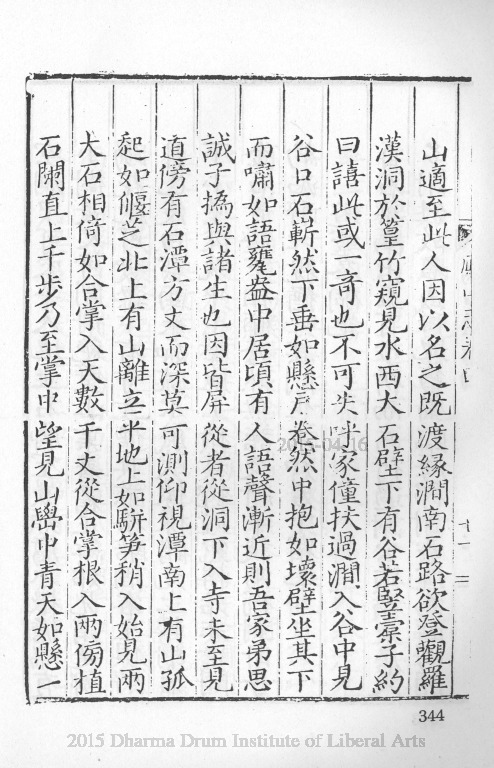 山適至此人因以名之既渡緣澗南石路欲登觀羅
漢洞於篁竹窺見水西大石壁下有谷若竪橐子約
曰譆此或一奇也不可失呼家僮扶過澗入谷中見
谷口石嶄然下垂如懸戶卷然中抱如壞壁坐其下
而嘯如語甕盎中居頃有人語聲漸近則吾家弟思
誠子撝與諸生也因皆屏從者從洞下入寺未至見
道傍有石潭方丈而深莫可測仰視潭南上有山孤
起如偃芝北上有山離立平地上如駢笋稍入始見兩
大石相倚如合掌入天數千丈從合掌根入兩傍植
石閞直上千步乃至掌中望見山巒中青天如懸一
344
2015 Dharma Drum Institute of Liberal Arts